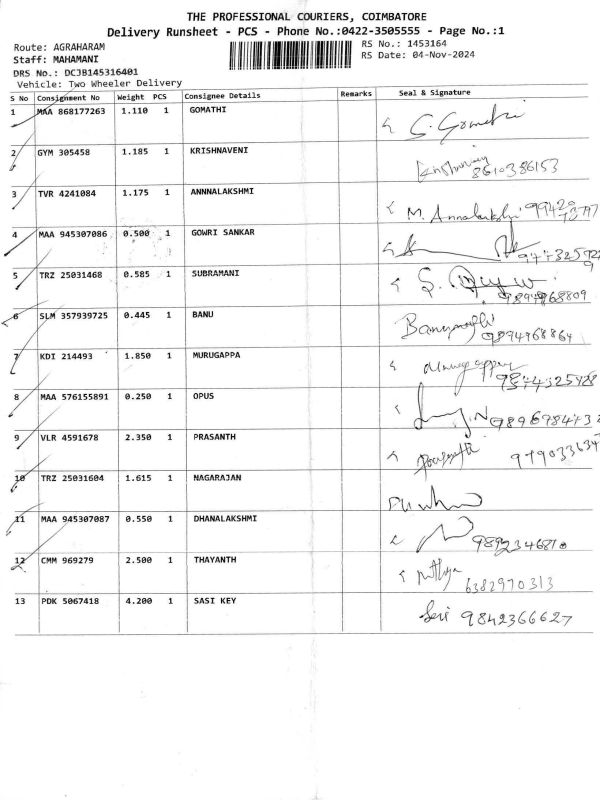 THE PROFESSIONAL COURIERS, COIMBATORE
Delivery Runsheet - PCS - Phone No.:0422-3505555 - Page No.:1
Route: AGRAHARAM
RS No.: 1453164
Staff: MAHAMANI
RS Date: 04-Nov-2024
DRS No.: DCJB145316401
Vehicle: Two Wheeler Delivery
S No Consignment No Weight PCS Consignee Details Remarks Seal & Signature
1 MAA 868177263 1.110 1 GOMATHI S. Gomathi
2 GYM 305458 1.185 1 KRISHNAVENI
8610386153
3 TVR 4241084 1.175 1 ANNNALAKSHMI M. Annalakshmi
4 MAA 945307086 0.500 1 GOWRI SANKAR
5 TRZ 25031468 0.585 1 SUBRAMANI
6 SLM 357939725 0.445 1 BANU
9894968864
7 KDI 214493 1.850 1 MURUGAPPA
8 MAA 576155891 0.250 1 OPUS
9 VLR 4591678 2.350 1 PRASANTH
10 TRZ 25031604 1.615 1 NAGARAJAN
11 MAA 945307087 0.550 1 DHANALAKSHMI
12 CMM 969279 2.500 1 THAYANTH
6382970313
13 PDK 5067418 4.200 1 SASI KEY
9842366627